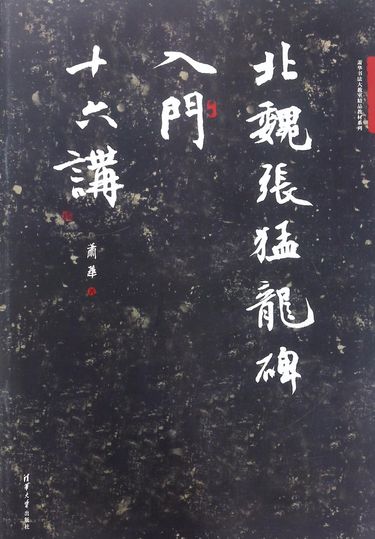 萧华书法大教室精品教材系列
北魏張猛龍碑
入門
十六講
蕭華 著
清华大学出版社